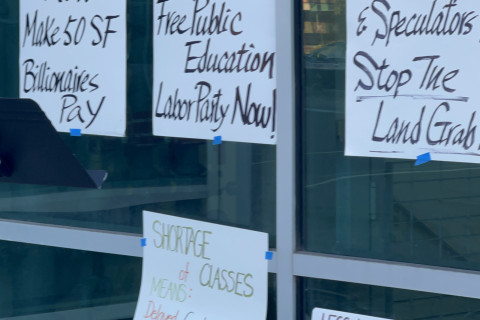 Make 50 SF
Billionaires
Pay
Free Public
Education
Labor Party Now!
& Speculators
Stop The
Land Grab
SHORTAGE
of CLASSES
MEANS:
Delayed